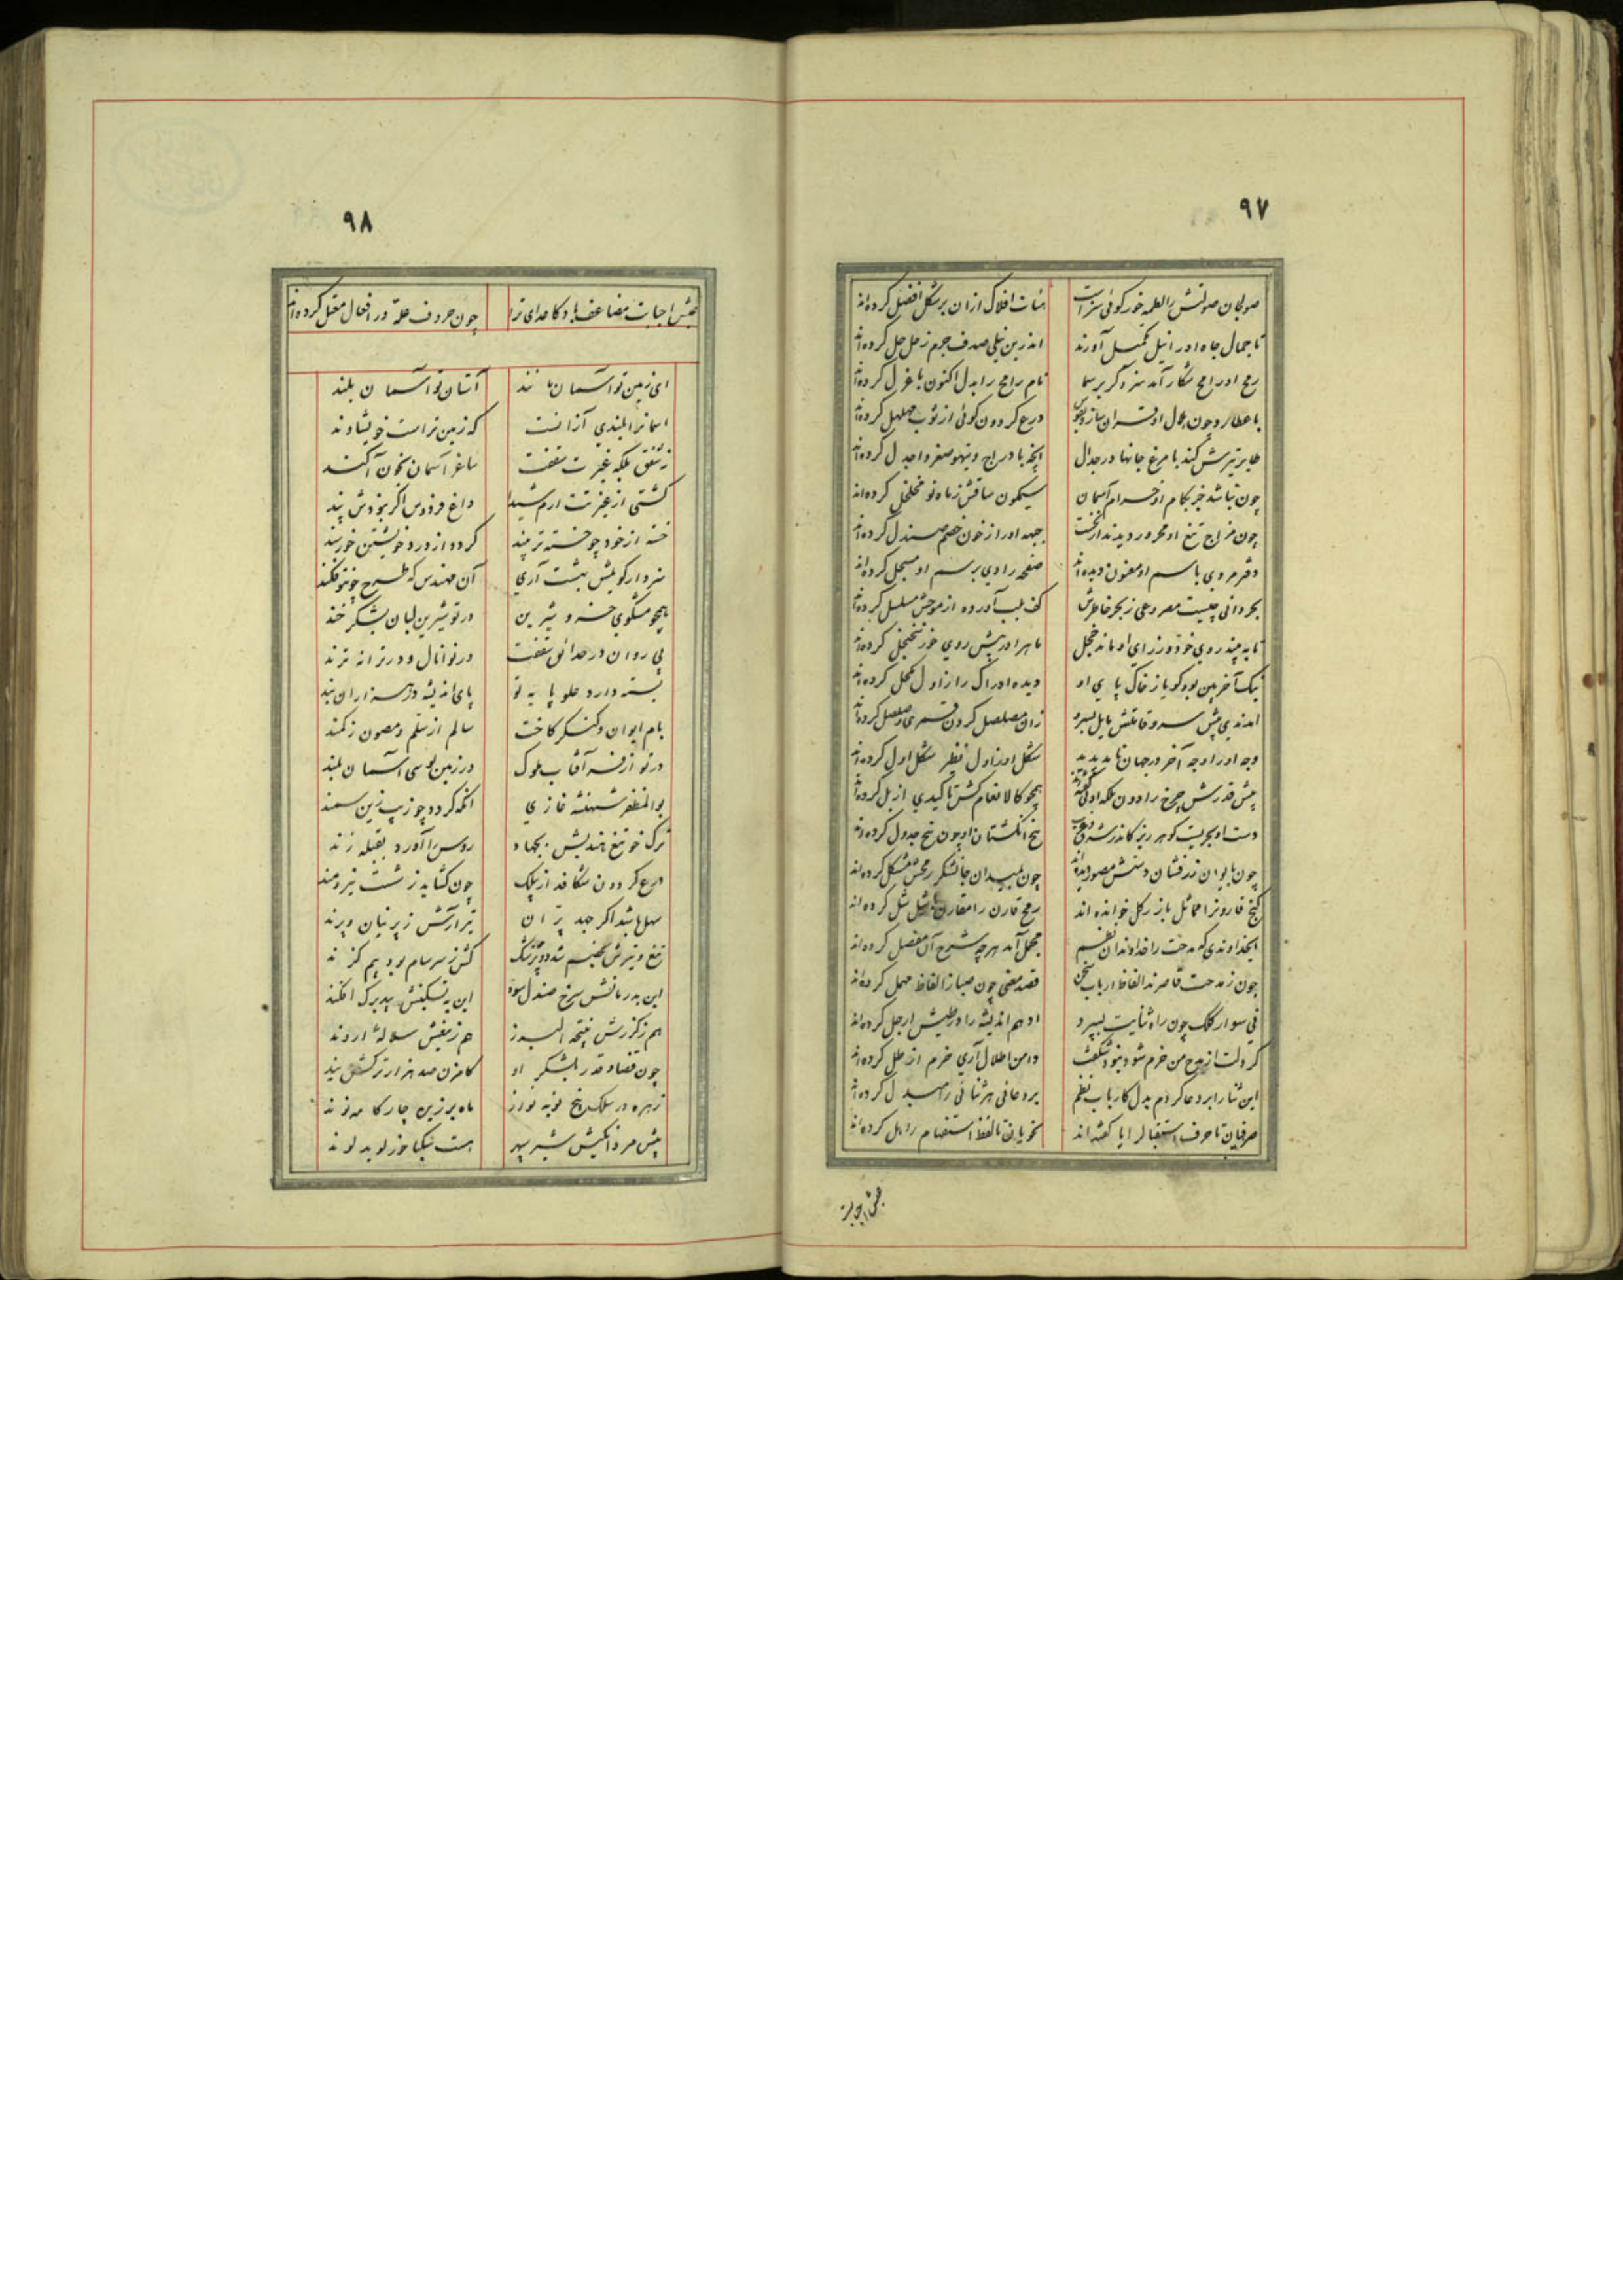 ۹۷
صولجان صولتش را لطمه خور کوئی سزاست هئات افلاک از ان بر شکل افضل کرده‌اند
تا جمال جاه او را نیل تکمیل آورند اندرین نیلی صدف جرم زحل حل کرده‌اند
رمح او رامح شکار آمد سزد کر بر سما نام رامح را بدل اکنون باعزل کرده‌اند
با عطارد چون جدل او درع کردون کوئی از ثوب مهلهل کرده‌اند
طایر تیرش کند با مرغ جانها در جدال آنچه با دراج و تیهو صقر و اجدل کرده‌اند
چون نباشد خیر بکام او خرام آسمان سیمکون ساقش ز ماه نو مخلخل کرده‌اند
چون مزاج تیغ او محرور دیدند از نخست جبهه او را از خون خصم صندل کرده‌اند
دفتر مردی باسم او معنون دیده‌اند صفحه رادی برسم او مسجل کرده‌اند
بحر دانی چیست مصروعی ز بحر خاطرش کف بلب آورده از موجش مسلسل کرده‌اند
تا به بیند روی خود وز رای او ماند خجل ماه را در پیش روی خور سجنجل کرده‌اند
نیک آخر بین بود کویا ز خاک پای او دیده ادراک را از اول مکحل کرده‌اند
پیش سرو قامتش زان مصلصل کردن قمری و صلصل کرده‌اند
وجه او را وجه آخر در جهان نادیدند شکل او ز اول نظر شکل اول کرده‌اند
پیش قدرش چرخ را دون همچو کالانعام کش تاکیدی از بل کرده‌اند
دست او بحریست کوهر ریز کاندر پنج انکشتان او چون پنج جدول کرده‌اند
چون بایوان زرفشان دستش مصور دیده‌اند چون بمیدان جانشکر رمحش مشکل کرده‌اند
کنج قارونرا مماثل باز رکل خوانده اند رمح قارن را مقارن باشل شل کرده‌اند
ایخداوندی که مدحت را خداوندان نظم مجمل آمد هرچه شرح آن مفصل کرده‌اند
چون ز مدحت قاصرند الفاظ ارباب سخن قصد معنی چون صبا ز الفاظ مهمل کرده‌اند
نی سوار کلک چون راه ثنایت بسپرد ادهم اندیشه را در طیش ارجل کرده‌اند
کر دلت از مدح من خرم شود نبود شکفت دامن اطلال آری خرم از طل کرده‌اند
این ثنا را بر دعا کردم بدل کارباب نظم بر دعائی هر ثنائی را مبدل کرده‌اند
صرفیان تا حرف استقبال را یا کفته‌اند نحویان تا لفظ استفهام را هل کرده‌اند
۹۸
جیش احبابت مضاعف باد کاعدای ترا چون حروف علة در افعال معتل کرده‌اند
ای زمین تو آسمان مانند آستان تو آسمان بلند
اسمانرا بلندی آزانست که زمین تراست خویشاوند
نه شفق بلکه غیرت سقفت ساغر آسمان بخون آکند
کشتی از غیرتت ارم شیدا داغ فردوس اکر نبودش پند
خسته از خود چو خسته تر بیند کردد از درد خویشتن خورسند
سزد ار کویمش بهشت آری آن مهندس که طرح چو تو فکند
همچو مشکوی خسرو و شیرین در تو شیرین لبان بشکر خند
پی روان در حدائق سقفت در نوا نال و در ترانه ترند
بسته دارد علو پایه تو پای اندیشه در هزاران بند
بام ایوان و کنکر کاخت سالم از سلم و مصون ز کمند
در تو از فر آفتاب ملوک در زمین بوسی آسمان بلند
بوالمظفر شهنشه غازی آنکه کردد چو زیب زین سمند
ترک خو تیغ هندیش بجهاد روس را آورد بقبله زند
درع کردون شکافد از پیلک چون کشاید ز شست نیرومند
سهل باشد اکر جهد پران تیر آرش ز پرنیان و پرند
تیغ و تیرش بخصم شد دو پزشک کش ز سرسام بود بیم کزند
این بدرمانش سرخ صندل سود این به تسکینش بیدبرک افکند
هم ز کرزش نتیجه البرز هم ز تیغش سلاله اروند
چون قضا و قدر بلشکر او کامزن صد هزار ترکش بند
زهره در سلک پنج نوبه نواز ماه بر زین چار کامه نوند
پیش مرد افکنیش شیر سپهر هست نیکی خور لوید لوند
جیش احبابت